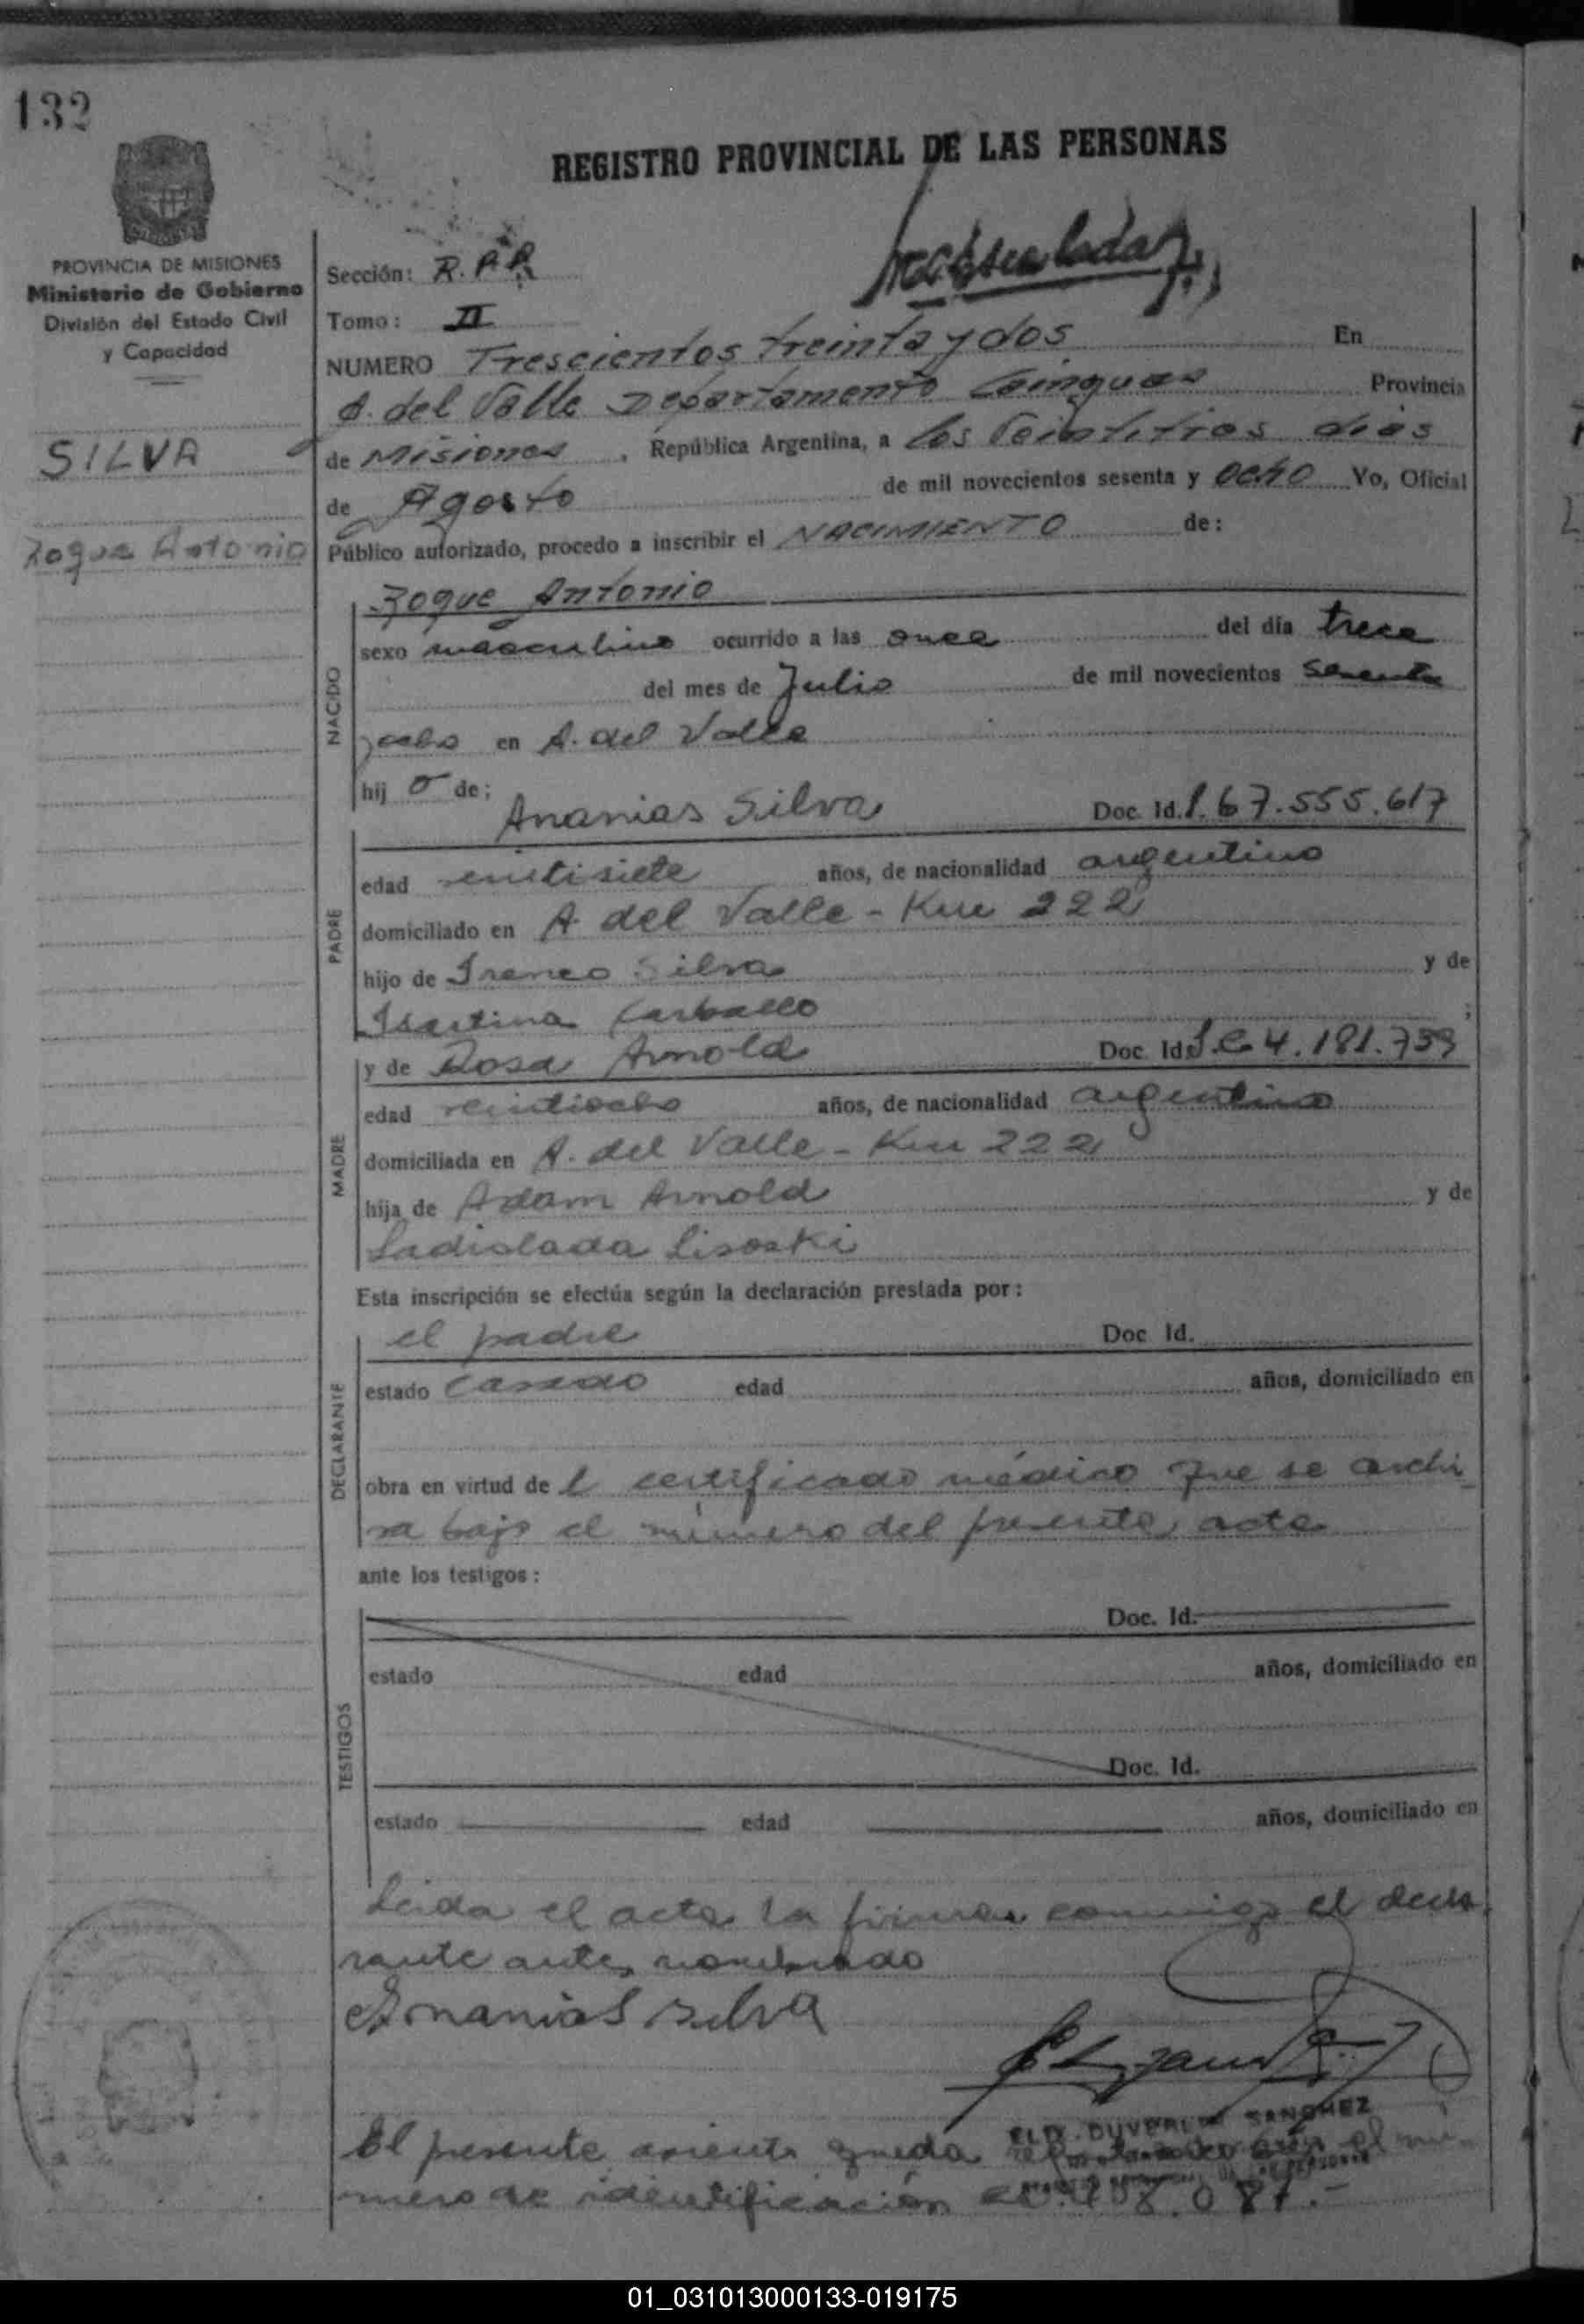 132
REGISTRO PROVINCIAL DE LAS PERSONAS
PROVINCIA DE MISIONES
Ministerio de Gobierno
División del Estado Civil
y Capacidad
SILVA
Roque Antonio
Sección: R.P.P.
Tomo: II
NUMERO Trescientos treinta y dos En
A. del Valle Departamento Cainguas Provincia
de Misiones, República Argentina, a los Veintitres dias
de Agosto de mil novecientos sesenta y ocho Yo, Oficial
Público autorizado, procedo a inscribir el NACIMIENTO de:
NACIDO
Roque Antonio
sexo masculino ocurrido a las once del día trece
del mes de Julio de mil novecientos sesenta
yocho en A. del Valle
hij o de:
Ananias Silva Doc. Id. 67.555.617
PADRE
edad veintisiete años, de nacionalidad argentino
domiciliado en A del Valle - Km 222
hijo de Ireneo Silva y de
Carballo ;
y de Rosa Arnold Doc Id. L.C 4.181.739
MADRE
edad veintiocho años, de nacionalidad argentina
domiciliada en A. del Valle - Km 222
hija de Adam Arnold y de
Ladislada Lisoski
Esta inscripción se efectúa según la declaración prestada por:
DECLARANTE
el padre Doc Id.
estado casado edad años, domiciliado en
obra en virtud de l certificado médico que se archi
va bajo el número del presente acta
ante los testigos:
TESTIGOS
Doc. Id.
estado edad años, domiciliado en
Doc. Id.
estado edad años, domiciliado en
Leida el acta la firma conmigo el decla
rante antes nombrado
Ananias Silva
SANCHEZ
El presente asiento queda el nú-
mero de identificación
01_031013000133-019175